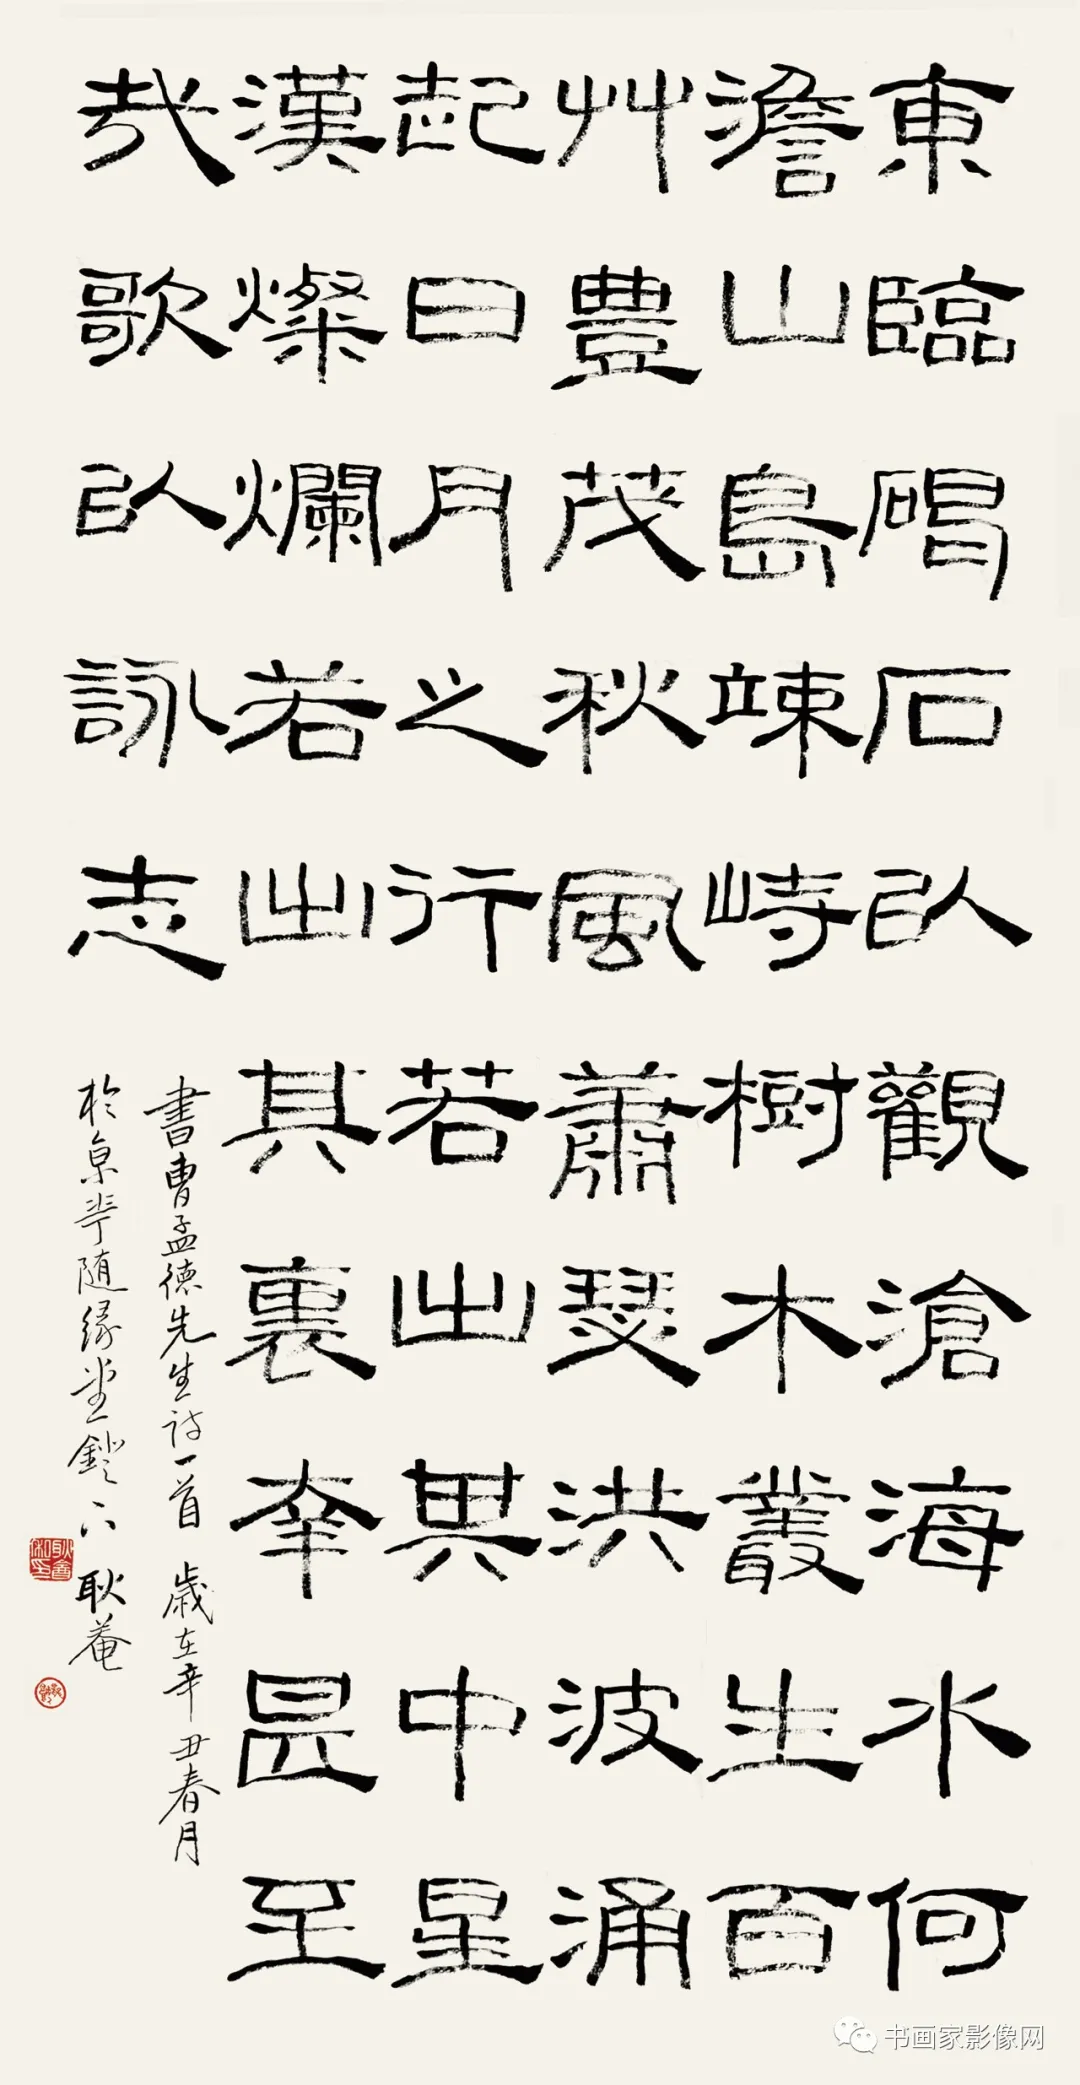 東臨碣石以觀滄海水何
澹山島竦峙樹木叢生百
艸豊茂秋風蕭瑟洪波涌
起日月之行若出其中星
漢燦爛若出其裏幸甚至
哉歌以詠志
書曹孟德先生诗一首 歲在辛丑春月
於京華随緣堂鐙下 耿菴
书画家影像网